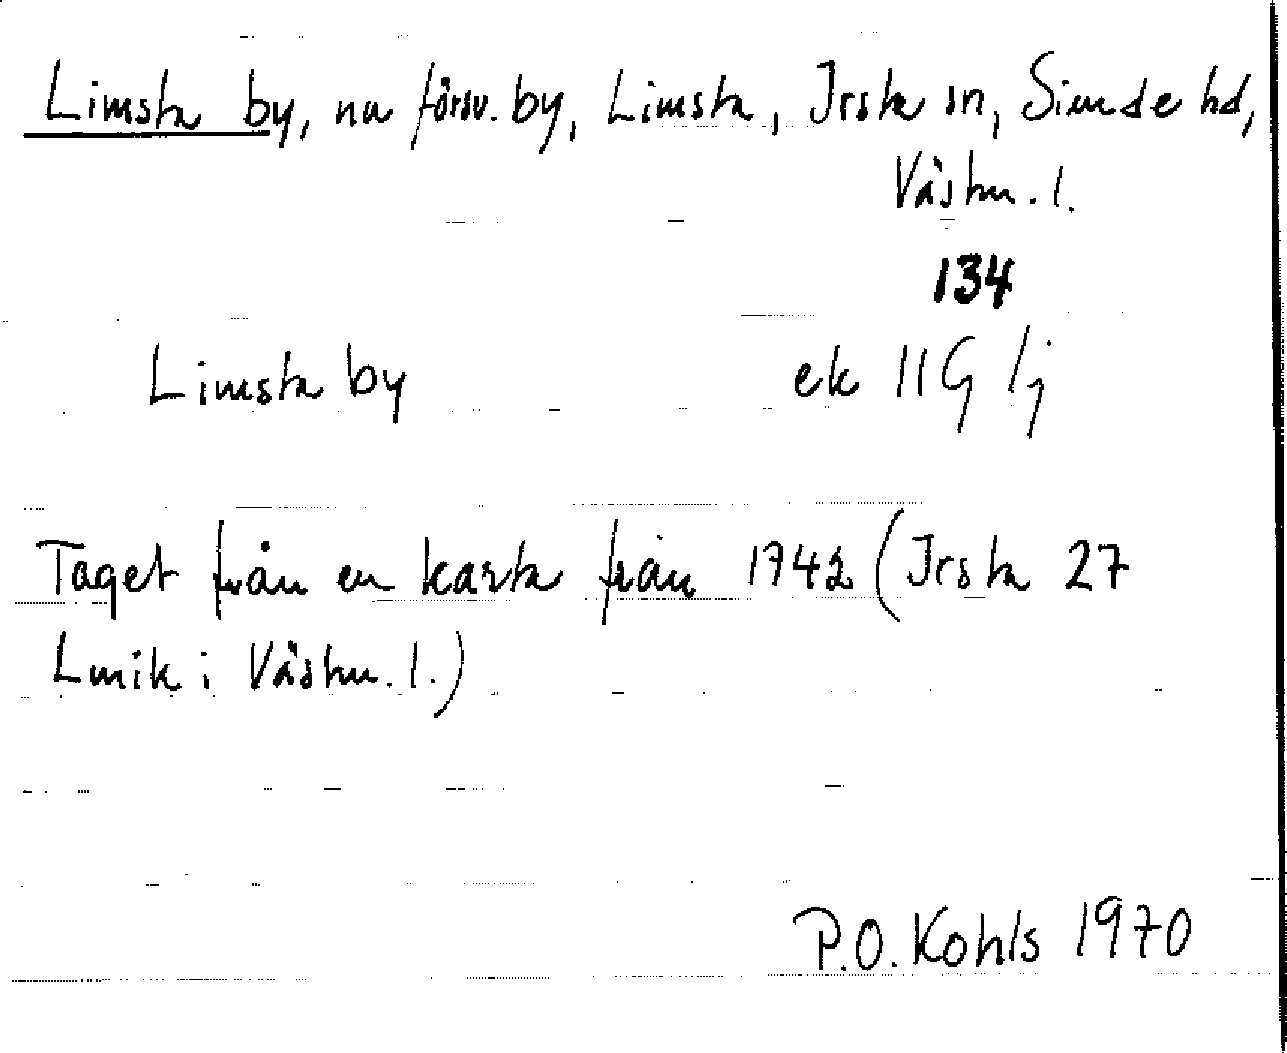 Limsta by, nu försv. by, Limsta, Irsta sn, Siende hd,
Västm. l.
134
Limsta by ek 11G /j
Taget från en karta från 1742 (Irsta 27
Lmik i Västm. l.)
P.O. Kohls 1970